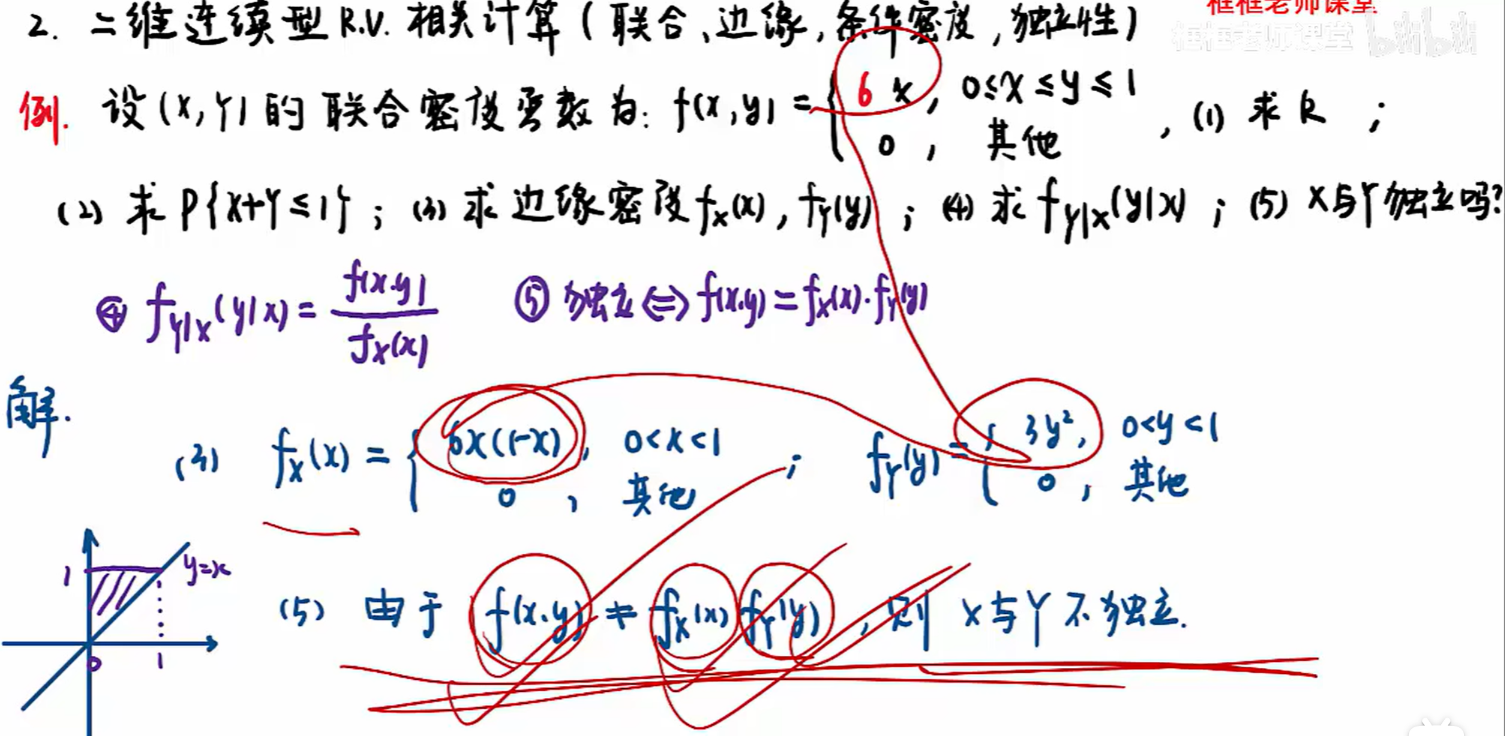 框框老师课堂
框框老师课堂 bilibili
2. 二维连续型R.V.相关计算(联合、边缘,条件密度,独立性)
例. 设(X,Y)的联合密度函数为: f(x,y) = { 6x, 0≤x≤y≤1
0, 其他 , (1) 求k ;
(2) 求P{X+Y≤1} ; (3) 求边缘密度fX(x), fY(y) ; (4) 求fY|X(y|x) ; (5) X与Y独立吗?
④ fY|X(y|x) = f(x.y) / fX(x) ⑤ 独立⇔f(x.y) = fX(x)·fY(y)
解.
(3) fX(x) = { 6x(1-x), 0<x<1 ; fY(y) = { 3y², 0<y<1
0, 其他 0, 其他
1 y=x
0 1
(5) 由于 f(x.y) ≠ fX(x) fY(y), 则 X与Y不独立.